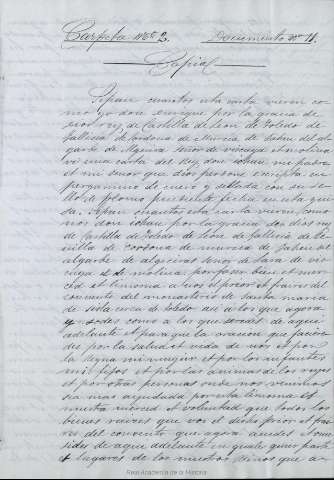 Carpeta nº 2. Documento nº 11.
Copia
Sepan cuantos esta carta vieren co-
mo yo don enrique por la gracia de
dios rey de Castilla de Leon de Toledo de
Gallisia de Cordova de Murcia de Jahen del al-
garbe de Algesira señor de viscaya et molina
vi una carta del Rey don iohan mi padre
et mi señor que dios perdone escripta en
pergamino de cuero y sellada con su se-
llo de plomo pendiente fecha en esta gui-
sa. Sepan cuantos esta carta vieren como
nos don iohan por la gracia de dios rey
de Castilla de Toledo de Leon de Gallisia de Se-
villa de Cordova de murcia de Jahen del
algarbe de algesira señor de Lara de vis-
caya et de molina por faser bien et mer-
ced et limosna a vos el prior et frayres del
convento del monasterio de santa maria
de sisla cerca de toledo asi a los que agora
y sodes como a los que serades de aqui
adelante et para que la oracion que facedes
des por la salud et vida de nos et por
la Reyna mi mugier et por los infantes
mis fijos et por las animas de los reyes
et por otras personas onde nos venimos
sea mas ayudada por esta limosna et
nuestra merced et voluntad que todos los
bienes rayces que vos el dicho prior et fray-
res del convento que agora avedes et ovie-
redes de aqui adelante en qualquier parte
et lugares de los nuestros reinos que a-
Real Academia de la Historia